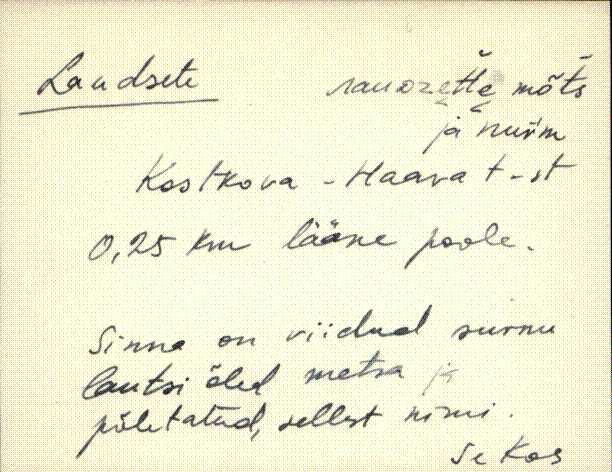 Laudsete mõts
ja nuŕm
Kostkova - Haava t-st
0,25 km lääne poole.
Sinna on viidud surnu
lautsi õled metsa ja
põletatud, sellest nimi.
Se Kos